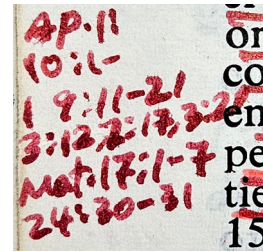 Ap. 11
10:1-
1 9:11-21
3:12, 2:17, 3:21
Mat. 17:1-7
24:30-31
on
co
en
pe
tie
15